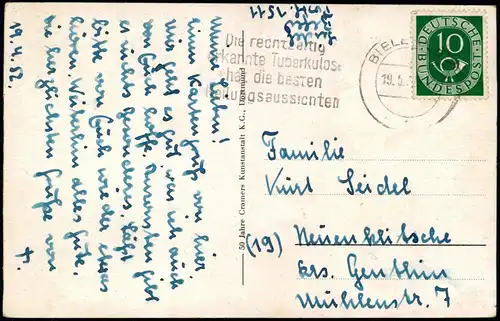 19.4.52.
Meine Lieben!
einen Kartengruß von hier
mir geht es gut was ich auch
von Euch hoffe. Ansonsten gibt
es nichts besonderes, laßt
bitte von Euch wieder etwas
hören. Weiterhin alles Gute.
die herzlichsten Grüße von
50 Jahre Cramers Kunstanstalt K.G., Dortmund
Die rechtzeitig
erkannte Tuberkulose
hat die besten
Heilungsaussichten
BIELE
19.5.
DEUTSCHE BUNDESPOST
10
Familie
Kurt Seidel
(19) Neuenklitsche
krs. Genthin
Mühlenstr. 7